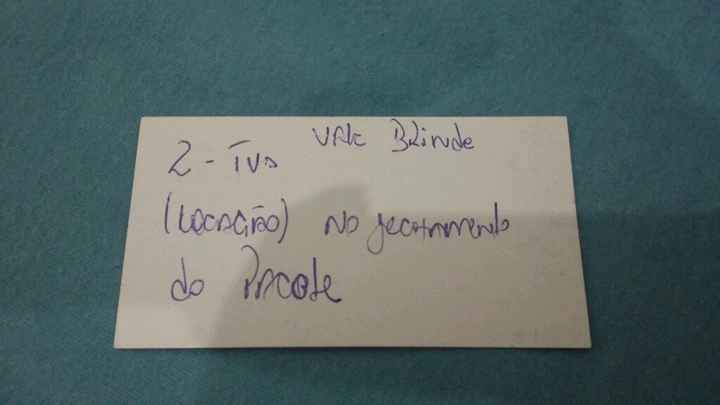 Vale Brinde
2 - TVs
(Locação) no fechamento
do Pacote